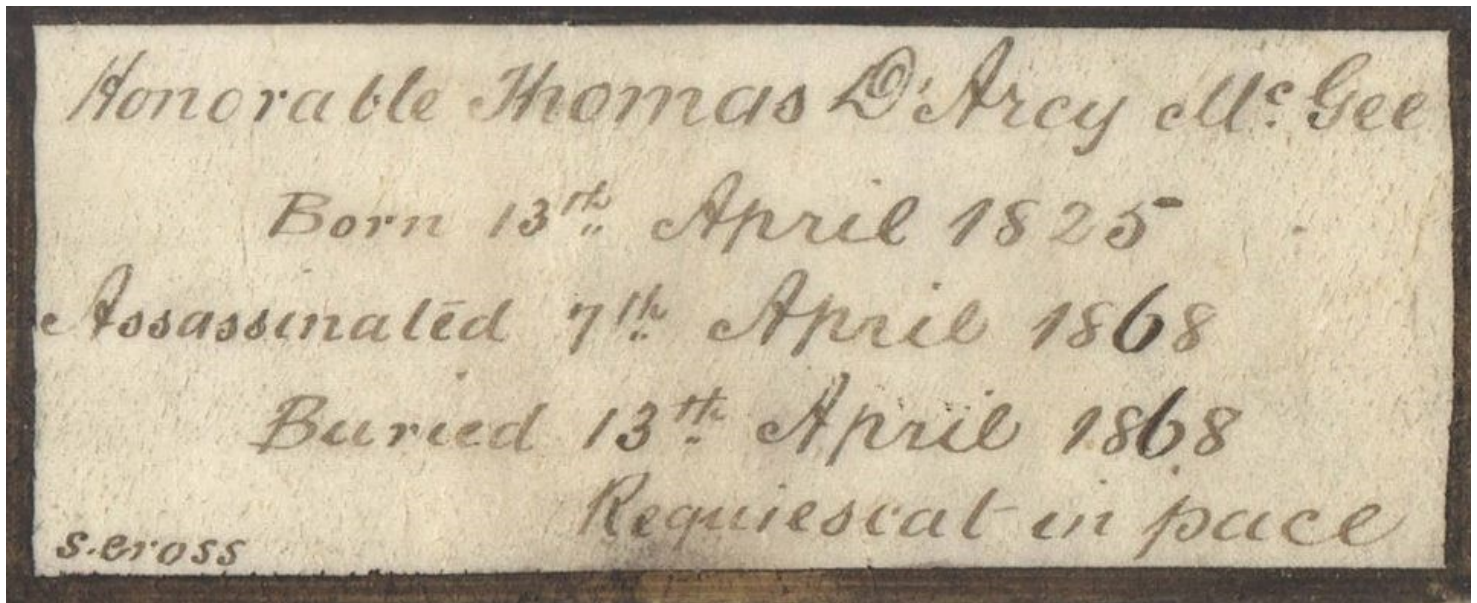 Honorable Thomas D'Arcy Mc. Gee
Born 13th April 1825
Assassinated 7th April 1868
Buried 13th April 1868
Requiescat in pace
s.cross